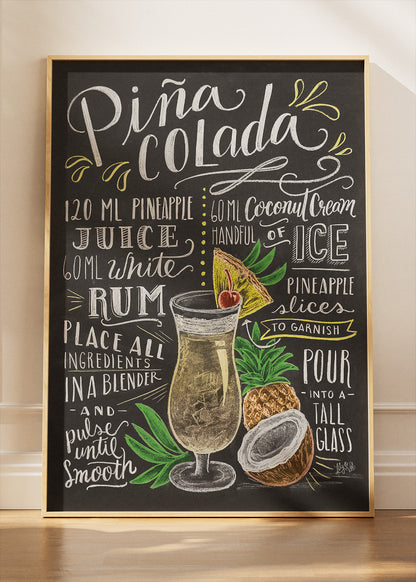 Piña
COLADA
120 ML PINEAPPLE
JUICE
60 ML White
RUM
PLACE ALL
INGREDIENTS
IN A BLENDER
- AND -
pulse
until
smooth
60 ML Coconut Cream
HANDFUL OF ICE
PINEAPPLE
slices
TO GARNISH
POUR
- INTO A -
TALL
GLASS